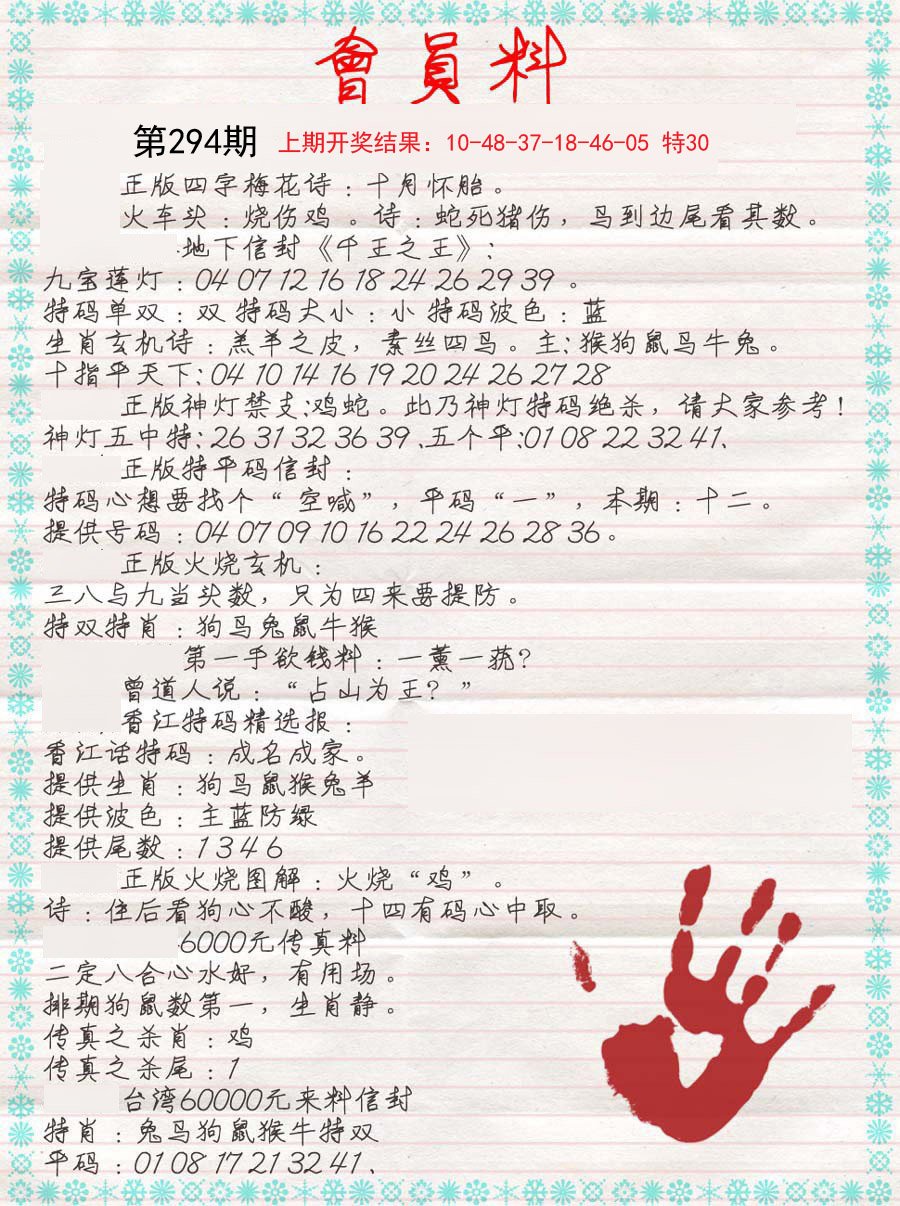 會員料
第294期 上期开奖结果：10-48-37-18-46-05 特30
正版四字梅花诗：十月怀胎。
火车头：烧伤鸡。诗：蛇死猪伤，鸟到边尾看其数。
地下信封《千王之王》：
九宝莲灯：04 07 12 16 18 24 26 29 39 。
特码单双：双 特码大小：小 特码波色：蓝
生肖玄机诗：羔羊之皮，素丝四鸟。主：猴狗鼠鸟牛兔。
十指平天下：04 10 14 16 19 20 24 26 27 28
正版神灯禁支：鸡蛇。此乃神灯特码绝杀，请大家参考！
神灯五中特：26 31 32 36 39 、五个平：01 08 22 32 41、
正版特平码信封：
特码心想要找个“空喊”，平码“一”，本期：十二。
提供号码：04 07 09 10 16 22 24 26 28 36。
正版火烧玄机：
三八与九当头数，只为四来要提防。
特双特肖：狗鸟兔鼠牛猴
第一手欲钱料：一薰一莸？
曾道人说：“占山为王？”
香江特码精选报：
香江话特码：成名成家。
提供生肖：狗鸟鼠猴兔羊
提供波色：主蓝防绿
提供尾数：1 3 4 6
正版火烧图解：火烧“鸡”。
诗：住后看狗心不酸，十四有码心中取。
6000元传真料
二定八合心水好，有用场。
排期狗鼠数第一，生肖静。
传真之杀肖：鸡
传真之杀尾：1
台湾60000元来料信封
特肖：兔鸟狗鼠猴牛特双
平码：01 08 17 21 32 41、